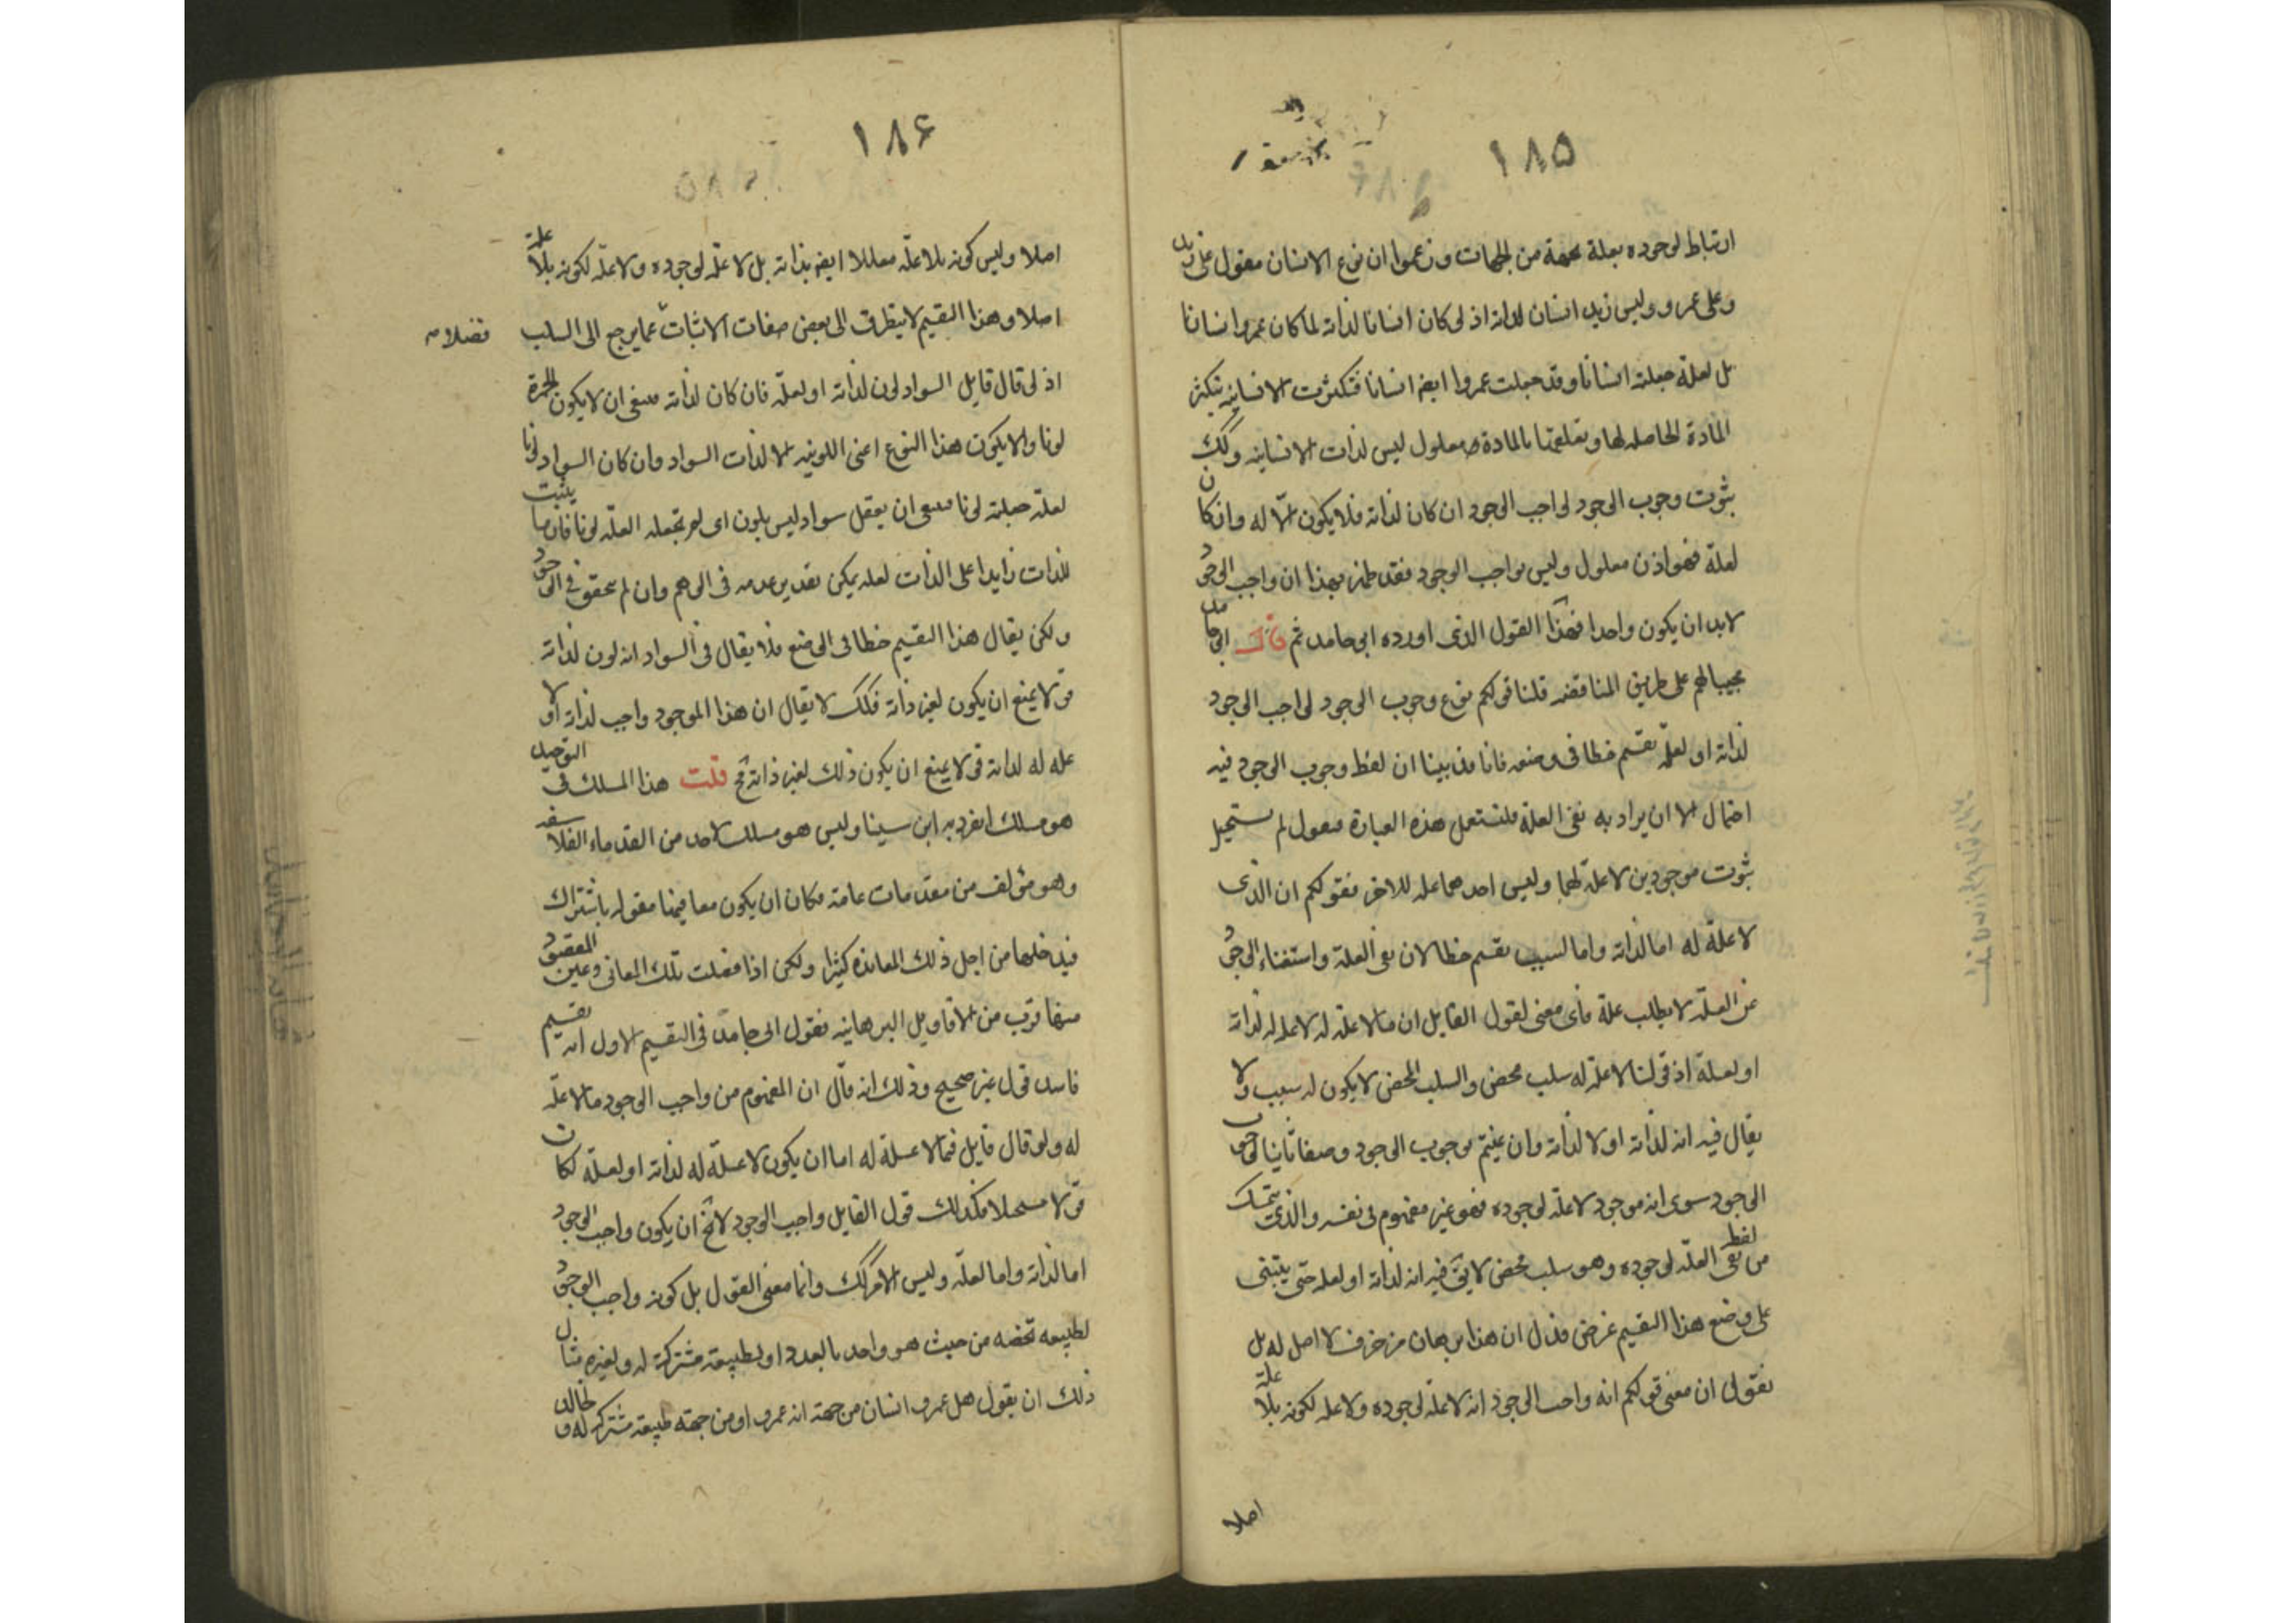 ١٨٥
ارتباط لوجوده بعلة بجهة من الجهات وزعموا ان نوع الانسان مقول على زيد
وعلى عمرو وليس زيد انسان لذاته اذ لو كان انسانا لذاته لما كان عمرو انسانا
بل لعلة جعلته انسانا وقد جعلت عمروا ايضا انسانا فتكثرت الانسانية بتكثر
المادة الحاصله لها وتعلقها بالمادة معلول ليس لذات الانسانيه وكك
ثبوت وجوب الوجود لواجب الوجود ان كان لذاته فلا يكون الا له وان كان
لعلة فهو اذن معلول وليس بواجب الوجود فقد ظهر بهذا ان واجب الوجود
لابد ان يكون واحدا فهذا القول الذى اورده ابى حامد ثم قال ابى حامد
مجيبا لهم على طريق المناقضه قلنا قولكم نوع وجوب الوجود لواجب الوجود
لذاته او لعلة تقسيم خطا فى وضعه فانا قد بينا ان لفظ وجوب الوجود فيه
احتمال الا ان يراد به نفى العلة فلنستعمل هذه العبارة فنقول لم يستحيل
ثبوت موجودين لا علة لهما وليس احدهما علة للاخر فقولكم ان الذى
لا علة له اما لذاته واما لسبب تقسيم خطا لان نفى العلة واستغناء الوجود
عن العلة لا يطلب علة فاى معنى لقول القايل ان ما لا علة له لا علة له لذاته
او لعلة اذ قولنا لا علة له سلب محض والسلب المحض لا يكون له سبب ولا
يقال فيه انه لذاته او لا لذاته وان عنيتم بوجوب الوجود وصفا ثابتا لواجب
الوجود سوى انه موجود لا علة لوجوده فهو غير مفهوم فى نفسه والذى يتمسك
من لفظ نفى العلة لوجوده وهو سلب محض لا يق فيه انه لذاته او لعلة حتى يبتنى
على وضع هذا التقسيم غرض فدل ان هذا برهان مزخرف لا اصل له بل
نقول ان معنى قولكم انه واجب الوجود انه لا علة لوجوده ولا علة لكونه بلا علة
اصلا
١٨۶
اصلا وليس كونه بلا علة معللا ايضا بذاته بل لا علة لوجوده ولا علة لكونه بلا علة
اصلا وهذا التقسيم لا يتطرق الى بعض صفات الاثبات عما يرجع الى السلب
فضلا
اذ لو قال قايل السواد لون لذاته او لعلة فان كان لذاته فينبغى ان لا يكون الحمرة
لونا والا يكون هذا النوع اعنى اللونيه الا لذات السواد وان كان السواد لونا
لعلة جعلته لونا فينبغى ان يعقل سواد ليس بلون اى لم تجعله العلة لونا فان ما يثبت
للذات زايدا على الذات لعلة يمكن تقدير عدمه فى الوهم وان لم يتحقق فى الوجود
ولكن يقال هذا التقسيم خطا فى الوضع فلا يقال فى السواد انه لون لذاته
قولا يمنع ان يكون لغير ذاته فكك لا يقال ان هذا الموجود واجب لذاته او لا
علة له لذاته قولا يمنع ان يكون ذلك لغير ذاته بح قلت هذا المسلك فى التوحيد
هو مسلك انفرد به ابن سينا وليس هو مسلك لاحد من القدماء الفلاسفه
وهو مؤلف من مقدمات عامة فكان ان يكون معانيها مقوله باشتراك
فيدخلها من اجل ذلك المعانده كثيرا ولكن اذا فصلت تلك المعانى وعين المقصود
منها قرب من الاقاويل البرهانيه فقول ابى حامد فى التقسيم الاول انه تقسيم
فاسد قول غير صحيح وذلك انه قال ان المفهوم من واجب الوجود ما لا علة
له ولو قال قايل فيما لا علة له اما ان يكون لا علة له لذاته او لعلة لكان
قولا مستحيلا فكذلك قول القايل واجب الوجود لا يخ ان يكون واجب الوجود
اما لذاته واما لعلة وليس الامر كك وانما معنى القول بل كونه واجب الوجود
لطبيعه تخصه من حيث هو واحد بالعدد او لطبيعة مشتركة له ولغيره مثال
ذلك ان يقول هل عمرو انسان من جهة انه عمرو او من جهة طبيعة مشتركه له و لخالد